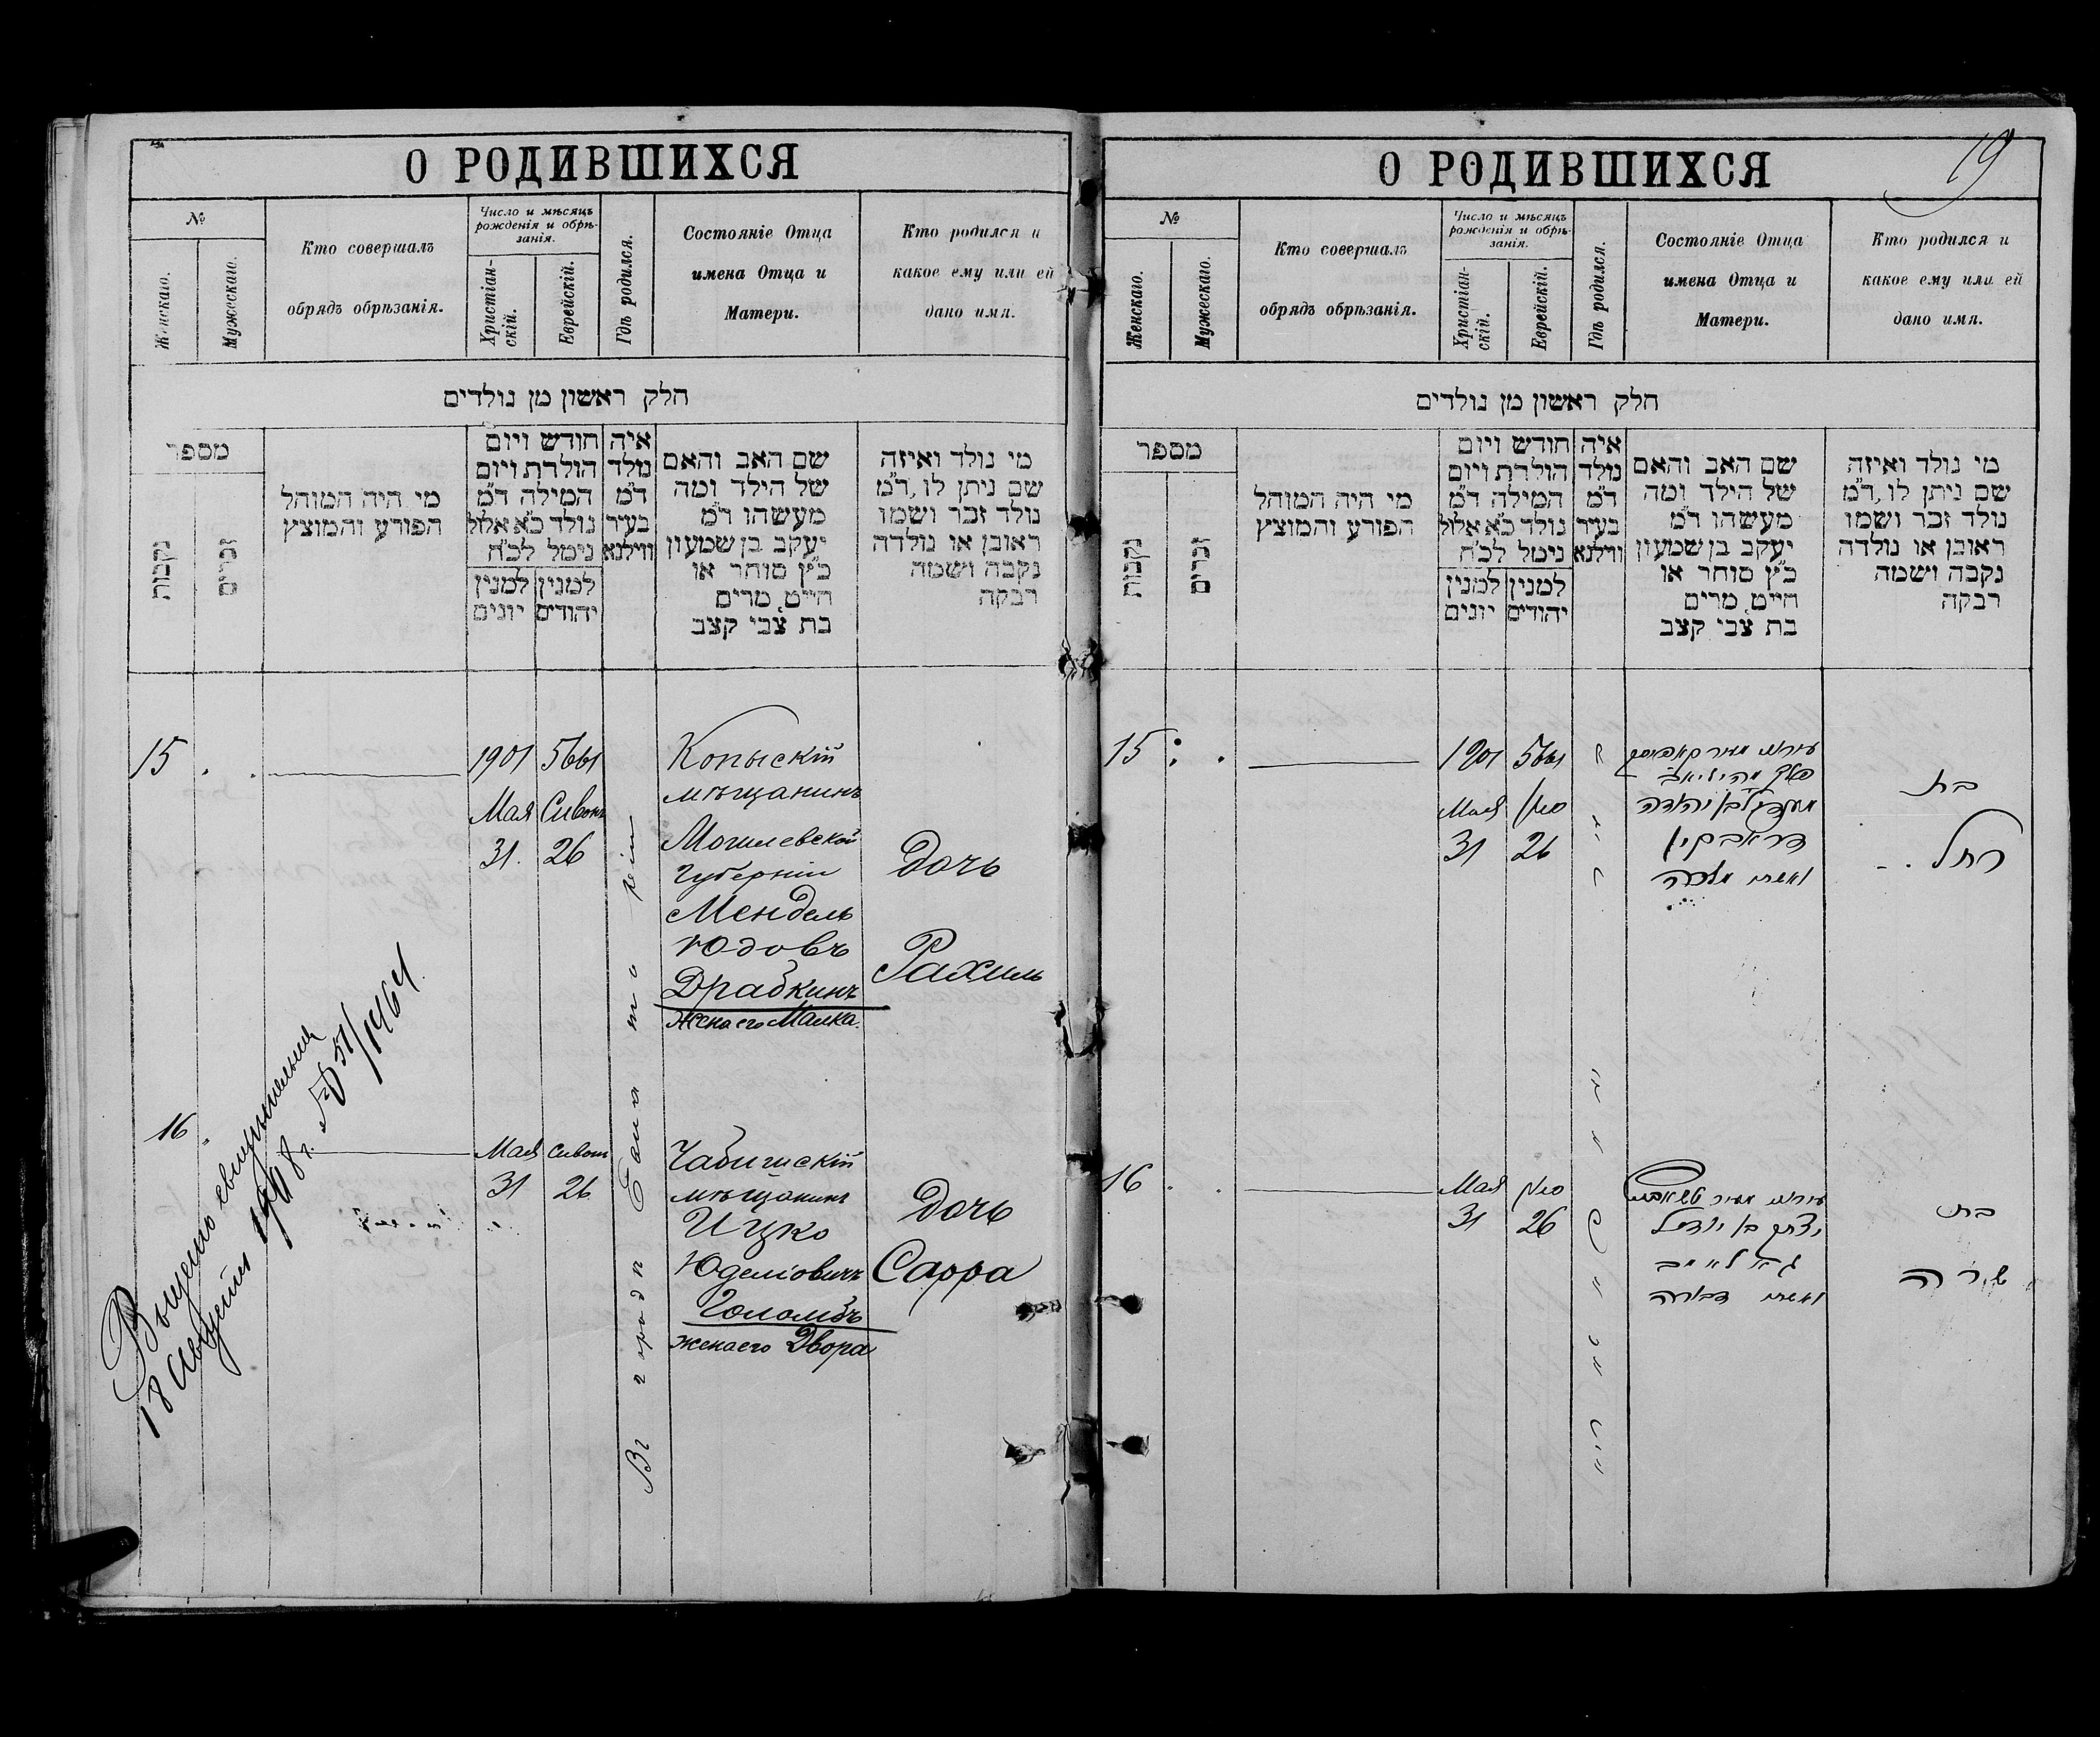 О РОДИВШИХСЯ
№
Женскаго.
Мужескаго.
Кто совершалъ
обрядъ обрѣзанія.
Число и мѣсяцъ
рожденія и обрѣ-
занія.
Христіан-
скій.
Еврейскій.
Гдѣ родился.
Состояніе Отца
имена Отца и
Матери.
Кто родился и
какое ему или ей
дано имя.
חלק ראשון מן נולדים
מספר
נקבות
זכרים
מי היה המוהל
הפורע והמוצץ
חודש ויום
הולדת ויום
המילה ד״מ
נולד כ״א אלול
נימל לכ״ח
למנין
יונים
למנין
יהודים
איה
נולד
ד״מ
בעיר
ווילנא
שם האב והאם
של הילד ומה
מעשהו ד״מ
יעקב בן שמעון
כ״ץ סוחר או
חייט, מרים
בת צבי קצב
מי נולד ואיזה
שם ניתן לו, ד״מ
נולד זכר ושמו
ראובן או נולדה
נקבה ושמה
רבקה
15
1901
Мая
31.
5661
Сивонъ
26
Копыскій
мѣщанинъ
Могилевской
Губерніи
Мендель
Юдовъ
Драбкинъ
жена его Малка.
Дочь
Рахиль
16
Мая
31
Сивон
26
Въ городѣ
мѣщанинъ
Ицко
Юделіовичъ
Голомбъ
жена его Двора
Дочь
Сарра
18 Августа
О РОДИВШИХСЯ
19
№
Женскаго.
Мужескаго.
Кто совершалъ
обрядъ обрѣзанія.
Число и мѣсяцъ
рожденія и обрѣ-
занія.
Христіан-
скій.
Еврейскій.
Гдѣ родился.
Состояніе Отца
имена Отца и
Матери.
Кто родился и
какое ему или ей
дано имя.
חלק ראשון מן נולדים
מספר
נקבות
זכרים
מי היה המוהל
הפורע והמוצץ
חודש ויום
הולדת ויום
המילה ד״מ
נולד כ״א אלול
נימל לכ״ח
למנין
יונים
למנין
יהודים
איה
נולד
ד״מ
בעיר
ווילנא
שם האב והאם
של הילד ומה
מעשהו ד״מ
יעקב בן שמעון
כ״ץ סוחר או
חייט, מרים
בת צבי קצב
מי נולד ואיזה
שם ניתן לו, ד״מ
נולד זכר ושמו
ראובן או נולדה
נקבה ושמה
רבקה
15
1901
Мая
31
5661
סיון
26
בן יהודה
דראבקין
ואשתו מלכה
בת
רחל
16
Мая
31
סיון
26
יצחק בן יודל
ואשתו דבורה
בת
שרה